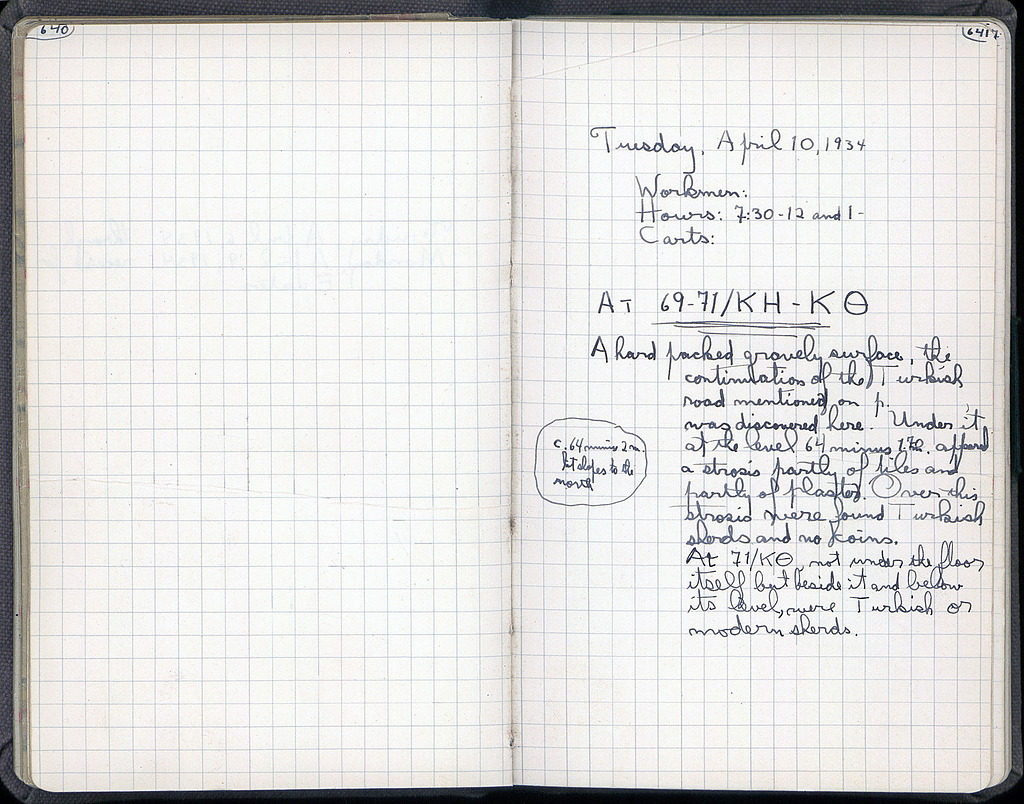 640
641
Tuesday, April 10, 1934
Workmen:
Hours: 7:30-12 and 1-
Carts:
AT 69-71/ΚΗ-ΚΘ
A hard packed gravely surface, the
continuation of the Turkish
road mentioned on p.
was discovered here. Under it
at the level 64 minus 1.70. appeared
a strosis partly of tiles and
partly of plaster. Over this
strosis were found Turkish
sherds and no coins.
At 71/ΚΘ, not under the floor
itself but beside it and below
its level, were Turkish or
modern sherds.
c. 64 minus 2 m.
but slopes to the
north